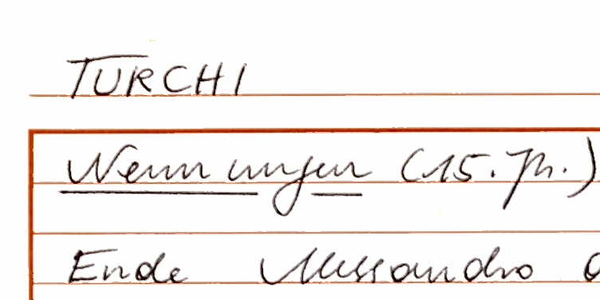 TURCHI
Nennungen (15. Jh.)
Ende Alessandro